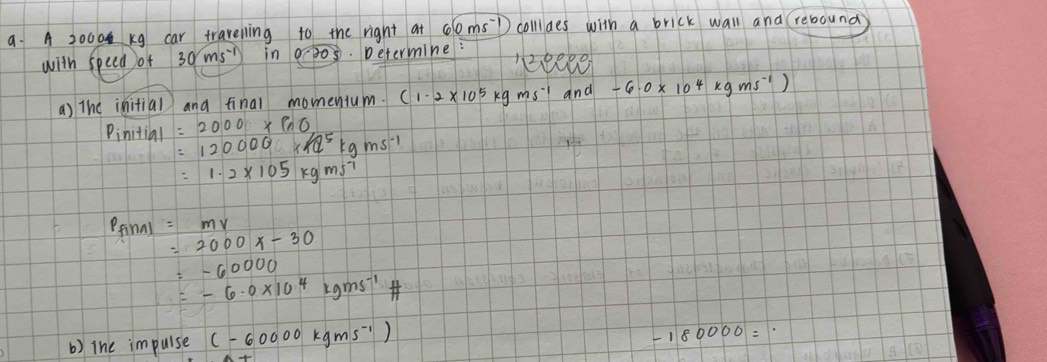 a. A 2000 kg car travelling to the right at 60 ms⁻¹ collides with a brick wall and rebound
with speed of 30 ms⁻¹ in 0.20s. Determine:
a) The initial and final momentum. (1.2 x 10⁵ kg ms⁻¹ and -6.0 x 10⁴ kg ms⁻¹)
Pinitial = 2000 x 60
= 120000 kg ms⁻¹
= 1.2 x 105 kg ms⁻¹
Pfinal = mv
= 2000 x -30
= -60000
= -6.0 x 10⁴ kgms⁻¹ #
b) The impulse (-60000 kgms⁻¹)
-180000 = .